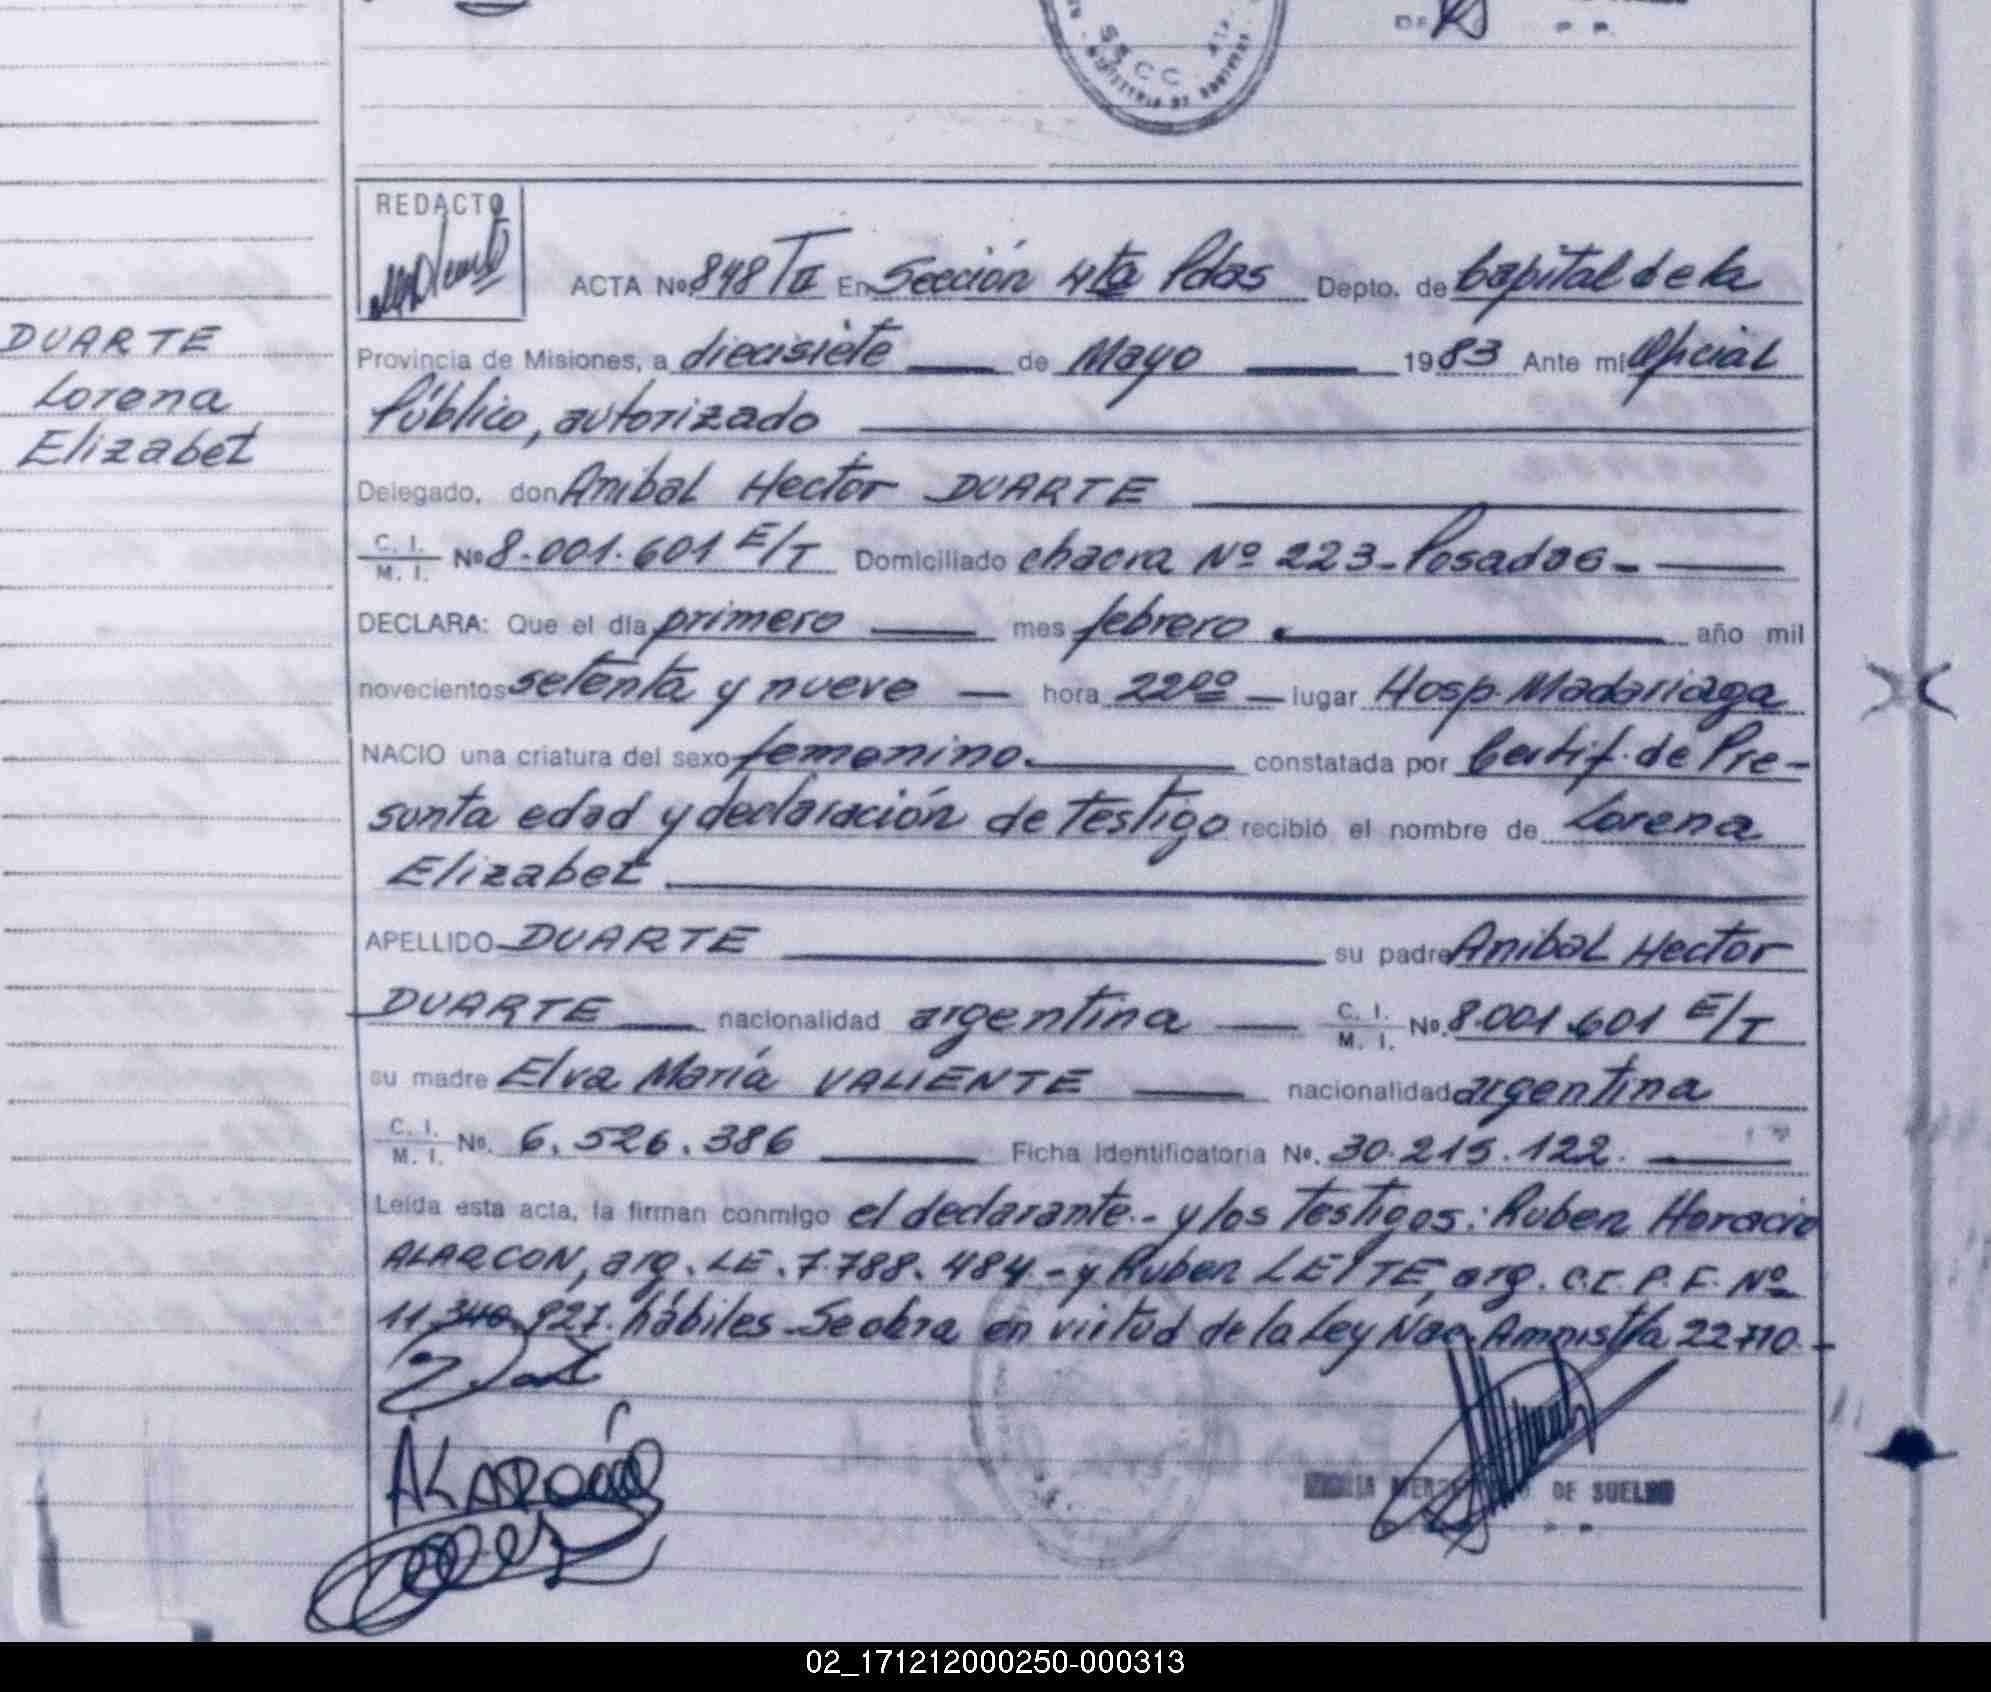 DE P. P.
SECC.
REDACTO
ACTA No 848 TII En Sección 4ta Pdas Depto. de Capital de la
DUARTE
Lorena
Elizabet
Provincia de Misiones, a diecisiete de Mayo 1983 Ante mí Oficial
Público, autorizado
Delegado, don Anibal Hector DUARTE
C. I. M. I. No 8.001.601 E/T Domiciliado chacra Nº 223-Posadas-
DECLARA: Que el día primero mes febrero año mil
novecientos setenta y nueve hora 22,00 lugar Hosp. Madariaga
NACIO una criatura del sexo femenino. constatada por Certif. de Pre-
sunta edad y declaración de testigo recibió el nombre de Lorena
Elizabet
APELLIDO DUARTE su padre Anibal Hector
DUARTE nacionalidad argentina C. I. M. I. No. 8.001.601 E/T
su madre Elva María VALIENTE nacionalidad argentina
C. I. M. I. No. 6.526.386 Ficha Identificatoria No. 30.215.122.
Leída esta acta, la firman conmigo el declarante.- y los testigos: Ruben Horacio
ALARCON, arg. LE. 7.788.484 - y Ruben LEITE, arg. C.I. P.F. Nº
11.340.927. hábiles-Se obra en virtud de la Ley Nac. Amnistía 22.710.-
ALARCON
DE SUELDO
02_171212000250-000313